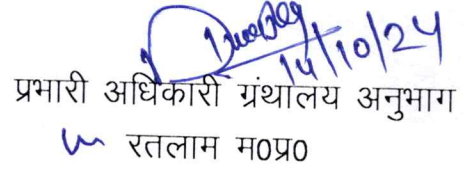 14/10/24
प्रभारी अधिकारी ग्रंथालय अनुभाग
रतलाम म0प्र0